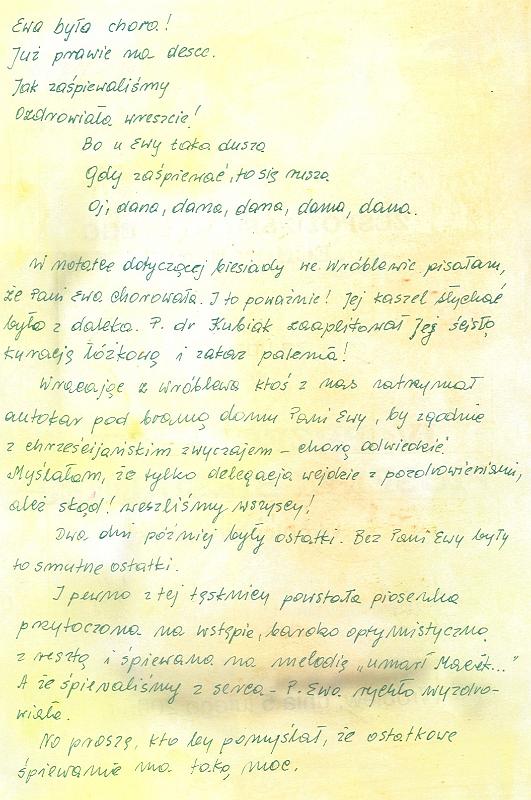 Ewa była chora!
Już prawie na desce.
Jak zaśpiewaliśmy
Ozdrowiała wreszcie!
Bo u Ewy taka dusza
Gdy zaśpiewać, to się rusza
Oj, dana, dana, dana, dana, dana.
W notatce dotyczącej biesiady we Wróblewie pisałam,
że Pani Ewa chorowała. I to poważnie! Jej kaszel słychać
było z daleka. P. dr Kubiak zaaplikował Jej ścisłą
kurację łóżkową i zakaz palenia!
Wracając z Wróblewa ktoś z nas zatrzymał
autokar pod bramą domu Pani Ewy, by zgodnie
z chrześcijańskim zwyczajem - chorą odwiedzić.
Myślałam, że tylko delegacja wejdzie z pozdrowieniami,
ależ skąd! weszliśmy wszyscy!
Dwa dni później były ostatki. Bez Pani Ewy były
to smutne ostatki.
I pewno z tej tęsknicy powstała piosenka
przytoczona na wstępie, bardzo optymistyczna
z resztą i śpiewana na melodię „umarł Maciek..."
A że śpiewaliśmy z serca - P. Ewa rychło wyzdro-
wiała.
No proszę, kto by pomyślał, że ostatkowe
śpiewanie ma taką moc.